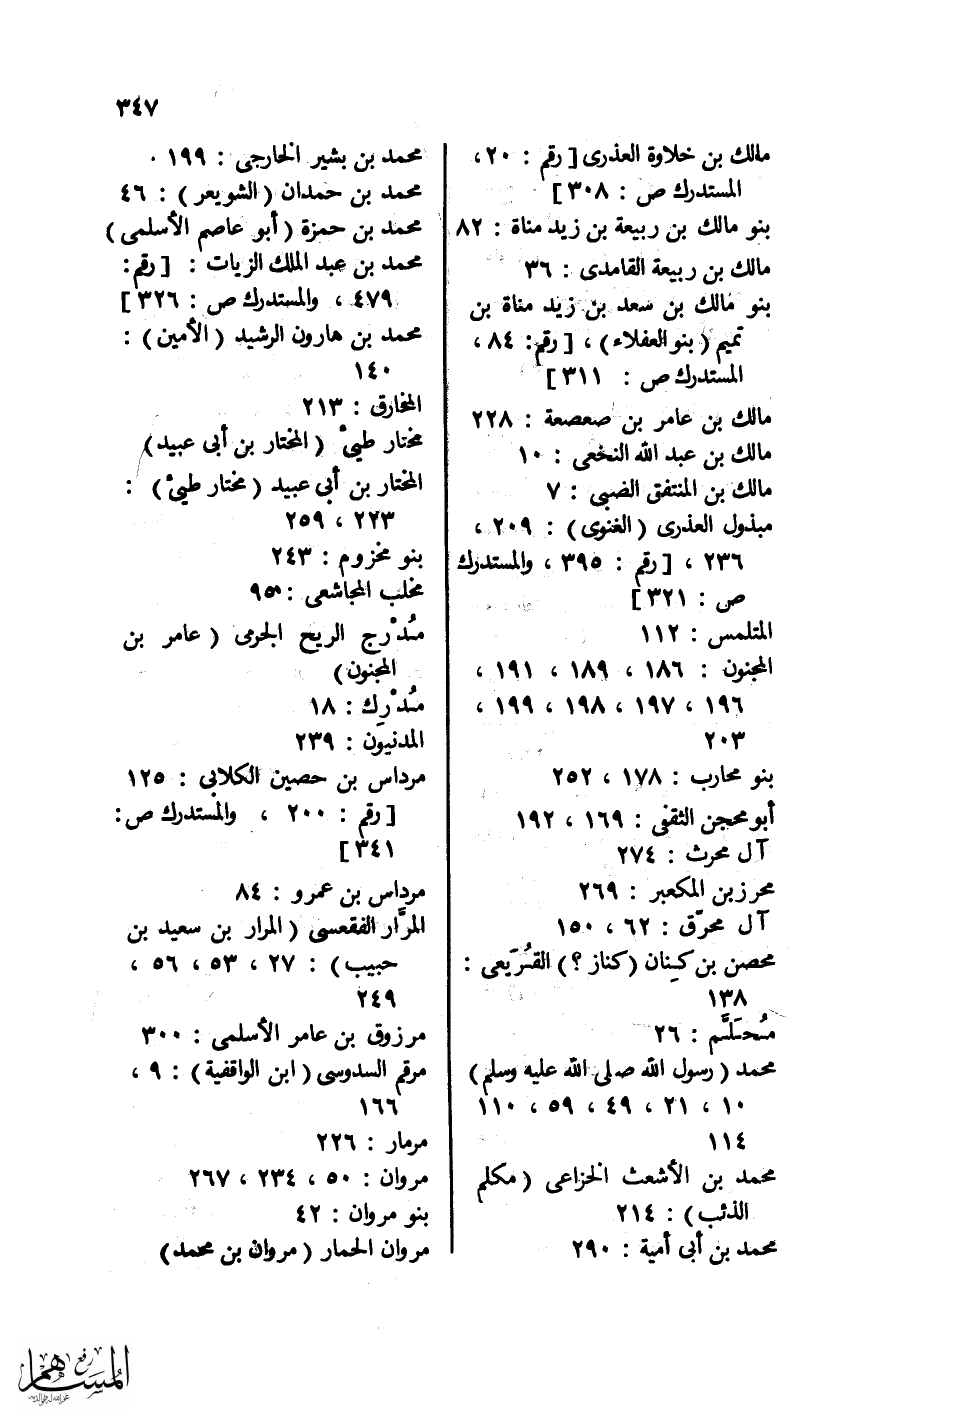 ٣٤٧
مالك بن خلاوة العذرى [ رقم : ٢٠ ،
المستدرك ص : ٣٠٨ ]
بنو مالك بن ربيعة بن زيد مناة : ٨٢
مالك بن ربيعة الغامدى : ٣٦
بنو مالك بن سعد بن زيد مناة بن
تميم ( بنو العفلاء ) ، [ رقم : ٨٤ ،
المستدرك ص : ٣١١ ]
مالك بن عامر بن صعصعة : ٢٢٨
مالك بن عبد الله النخعى : ١٠
مالك بن المنتفق الضبى : ٧
مبذول العذرى ( الغنوى ) : ٢٠٩ ،
٢٣٦ ، [ رقم : ٣٩٥ ، والمستدرك
ص : ٣٢١ ]
المتلمس : ١١٢
المجنون : ١٨٦ ، ١٨٩ ، ١٩١ ،
١٩٦ ، ١٩٧ ، ١٩٨ ، ١٩٩ ،
٢٠٣
بنو محارب : ١٧٨ ، ٢٥٢
أبو محجن الثقفى : ١٦٩ ، ١٩٢
آل محرث : ٢٧٤
محرز بن المكعبر : ٢٦٩
آل محرّق : ٦٢ ، ١٥٠
محصن بن كنان ( كناز ؟ ) القُرَيعى :
١٣٨
مُحَلَّم : ٢٦
محمد ( رسول الله صلى الله عليه وسلم )
١٠ ، ٢١ ، ٤٩ ، ٥٩ ، ١١٠
١١٤
محمد بن الأشعث الخزاعى ( مكلم
الذئب ) : ٢١٤
محمد بن أبى أمية : ٢٩٠
محمد بن بشير الخارجى : ١٩٩ .
محمد بن حمدان ( الشويعر ) : ٤٦
محمد بن حمزة ( أبو عاصم الأسلمى )
محمد بن عبد الملك الزيات : [ رقم :
٤٧٩ ، والمستدرك ص : ٣٢٦ ]
محمد بن هارون الرشيد ( الأمين ) :
١٤٠
المخارق : ٢١٣
مختار طيئ ( المختار بن أبى عبيد )
المختار بن أبى عبيد ( مختار طيئ ) :
٢٢٣ ، ٢٥٩
بنو مخزوم : ٢٤٣
مخلب المجاشعى : ٩٥
مُدْرج الريح الجرمى ( عامر بن
المجنون )
مُدْرِك : ١٨
المدنيون : ٢٣٩
مرداس بن حصين الكلابى : ١٢٥
[ رقم : ٢٠٠ ، والمستدرك ص :
٣٤١ ]
مرداس بن عمرو : ٨٤
المرَّار الفقعسى ( المرار بن سعيد بن
حبيب ) : ٢٧ ، ٥٣ ، ٥٦ ،
٢٤٩
مرزوق بن عامر الأسلمى : ٣٠٠
مرقم السدوسى ( ابن الواقفية ) : ٩ ،
١٦٦
مرمار : ٢٢٦
مروان : ٥٠ ، ٢٣٤ ، ٢٦٧
بنو مروان : ٤٢
مروان الحمار ( مروان بن محمد )
رفع
المساهم